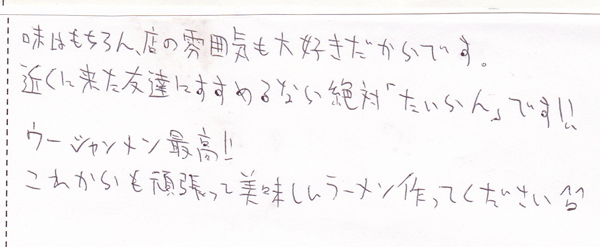 味はもちろん、店の雰囲気も大好きだからです。
近くに来た友達にすすめるなら絶対「たいらん」です!!
ウージャンメン最高!!
これからも頑張って美味しいラーメン作ってください^^